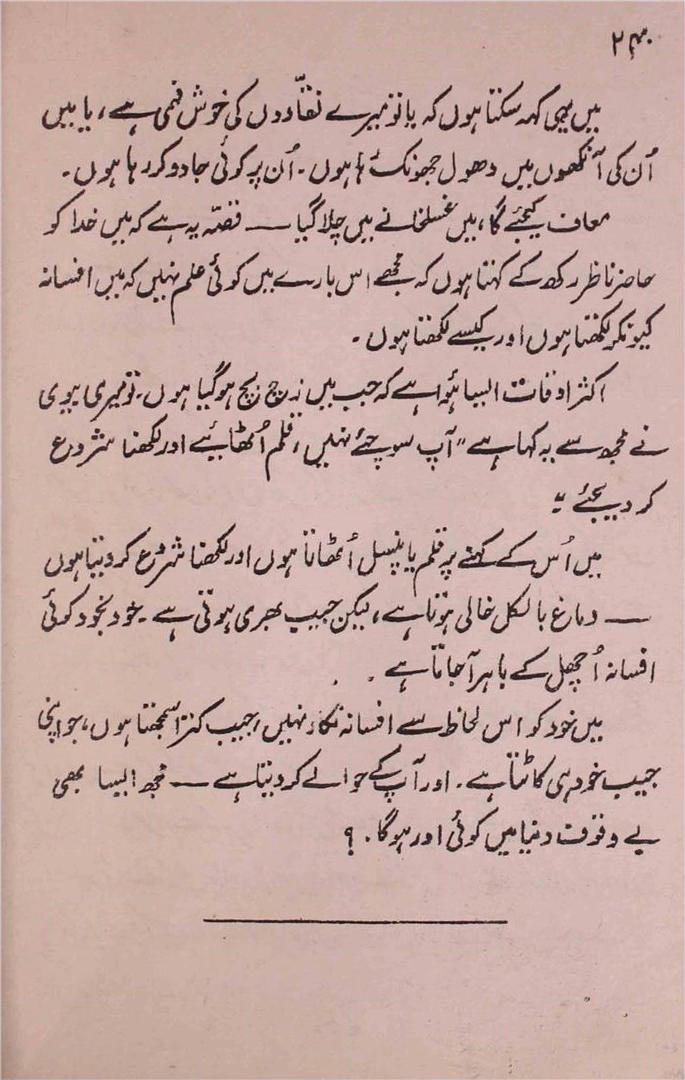 ۲۴۰
میں یہی کہہ سکتا ہوں کہ یا تو میرے نقّادوں کی خوش فہمی ہے، یا میں
اُن کی آنکھوں میں دھول جھونک رہا ہوں۔ اُن پر کوئی جادو کر رہا ہوں۔
معاف کیجئے گا، میں غسلخانے میں چلا گیا — قصّہ یہ ہے کہ میں خدا کو
حاضر ناظر رکھ کے کہتا ہوں کہ مجھے اس بارے میں کوئی علم نہیں کہ میں افسانہ
کیونکر لکھتا ہوں اور کیسے لکھتا ہوں۔
اکثر اوقات ایسا ہُوا ہے کہ جب میں زچ بچ ہو گیا ہوں۔ تو میری بیوی
نے مجھ سے یہ کہا ہے "آپ سوچئے نہیں، قلم اُٹھائیے اور لکھنا شروع
کر دیجئے"
میں اُس کے کہنے پر قلم یا پنسل اُٹھاتا ہوں اور لکھنا شروع کر دیتا ہوں
— دماغ بالکل خالی ہوتا ہے، لیکن جیب بھری ہوتی ہے۔ خود بخود کوئی
افسانہ اُچھل کے باہر آ جاتا ہے۔
میں خود کو اس لحاظ سے افسانہ نگار نہیں، جیب کترا سمجھتا ہوں، جو اپنی
جیب خود ہی کاٹتا ہے۔ اور آپ کے حوالے کر دیتا ہے — مجھ ایسا بھی
بے وقوف دنیا میں کوئی اور ہوگا۔ ؟